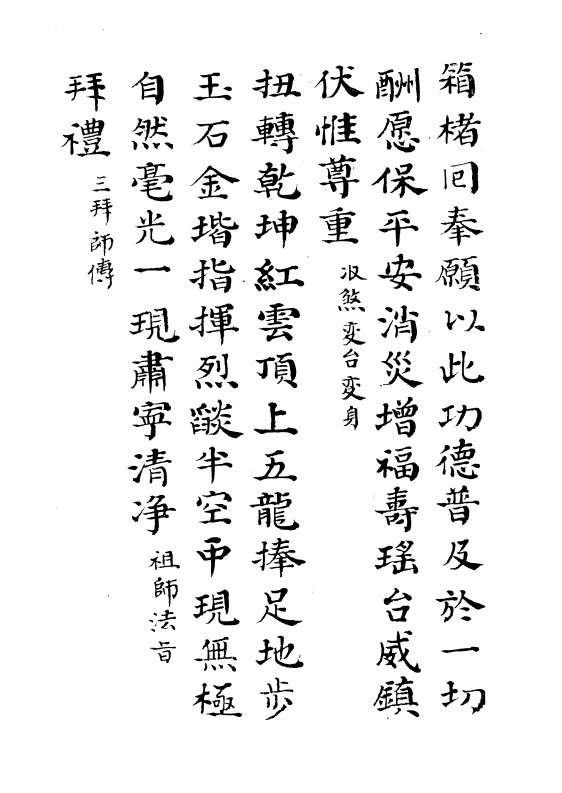 箱楮回奉願以此功德普及於一切
酬愿保平安消災增福壽瑤台威鎮
伏惟尊重 収煞変台変身
扭轉乾坤紅雲頂上五龍捧足地步
玉石金堦指揮烈燄半空中現無極
自然毫光一現肅寧清净 祖師法旨
拜禮 三拜師傅